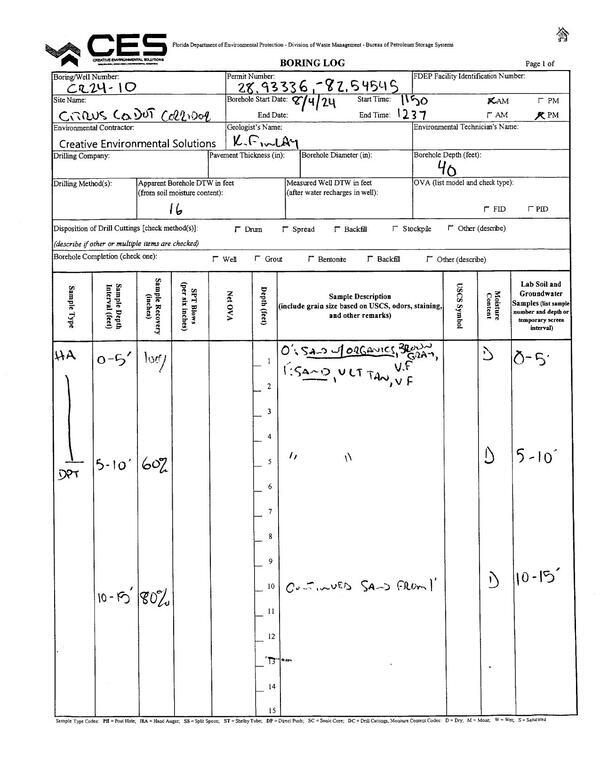 CES
CREATIVE ENVIRONMENTAL SOLUTIONS
Florida Department of Environmental Protection - Division of Waste Management - Bureau of Petroleum Storage Systems
BORING LOG
Page 1 of
Boring/Well Number: CR24-10
Permit Number: 28.93336, -82.54545
FDEP Facility Identification Number:
Site Name: Citrus CoDOT Corridor
Borehole Start Date: 8/4/24 Start Time: 1150 AM PM
End Date: End Time: 1237 AM PM
Environmental Contractor: Creative Environmental Solutions
Geologist's Name: K. Finlay
Environmental Technician's Name:
Drilling Company:
Pavement Thickness (in):
Borehole Diameter (in):
Borehole Depth (feet): 40
Drilling Method(s):
Apparent Borehole DTW in feet (from soil moisture content): 16
Measured Well DTW in feet (after water recharges in well):
OVA (list model and check type):
FID PID
Disposition of Drill Cuttings [check method(s)]: Drum Spread Backfill Stockpile Other (describe)
(describe if other or multiple items are checked)
Borehole Completion (check one): Well Grout Bentonite Backfill Other (describe)
Sample Type
Sample Depth Interval (feet)
Sample Recovery (inches)
SPT Blows (per six inches)
Net OVA
Depth (feet)
Sample Description (include grain size based on USCS, odors, staining, and other remarks)
USCS Symbol
Moisture Content
Lab Soil and Groundwater Samples (list sample number and depth or temporary screen interval)
HA 0-5' 1 0': SAND w/ORGANICS, BROWN GRAY, V.F D 0-5'
1': SAND, V LT TAN, V F
2
3
4
DPT 5-10' 60% 5 " " D 5-10'
6
7
8
9
10-15' 80% 10 CONTINUED SAND FROM 1' D 10-15'
11
12
13
14
15
Sample Type Codes: PH = Post Hole; HA = Hand Auger; SS = Split Spoon; ST = Shelby Tube; DP = Direct Push; SC = Sonic Core; DC = Drill Cuttings, Moisture Content Codes: D = Dry, M = Moist, W = Wet, S = Saturated